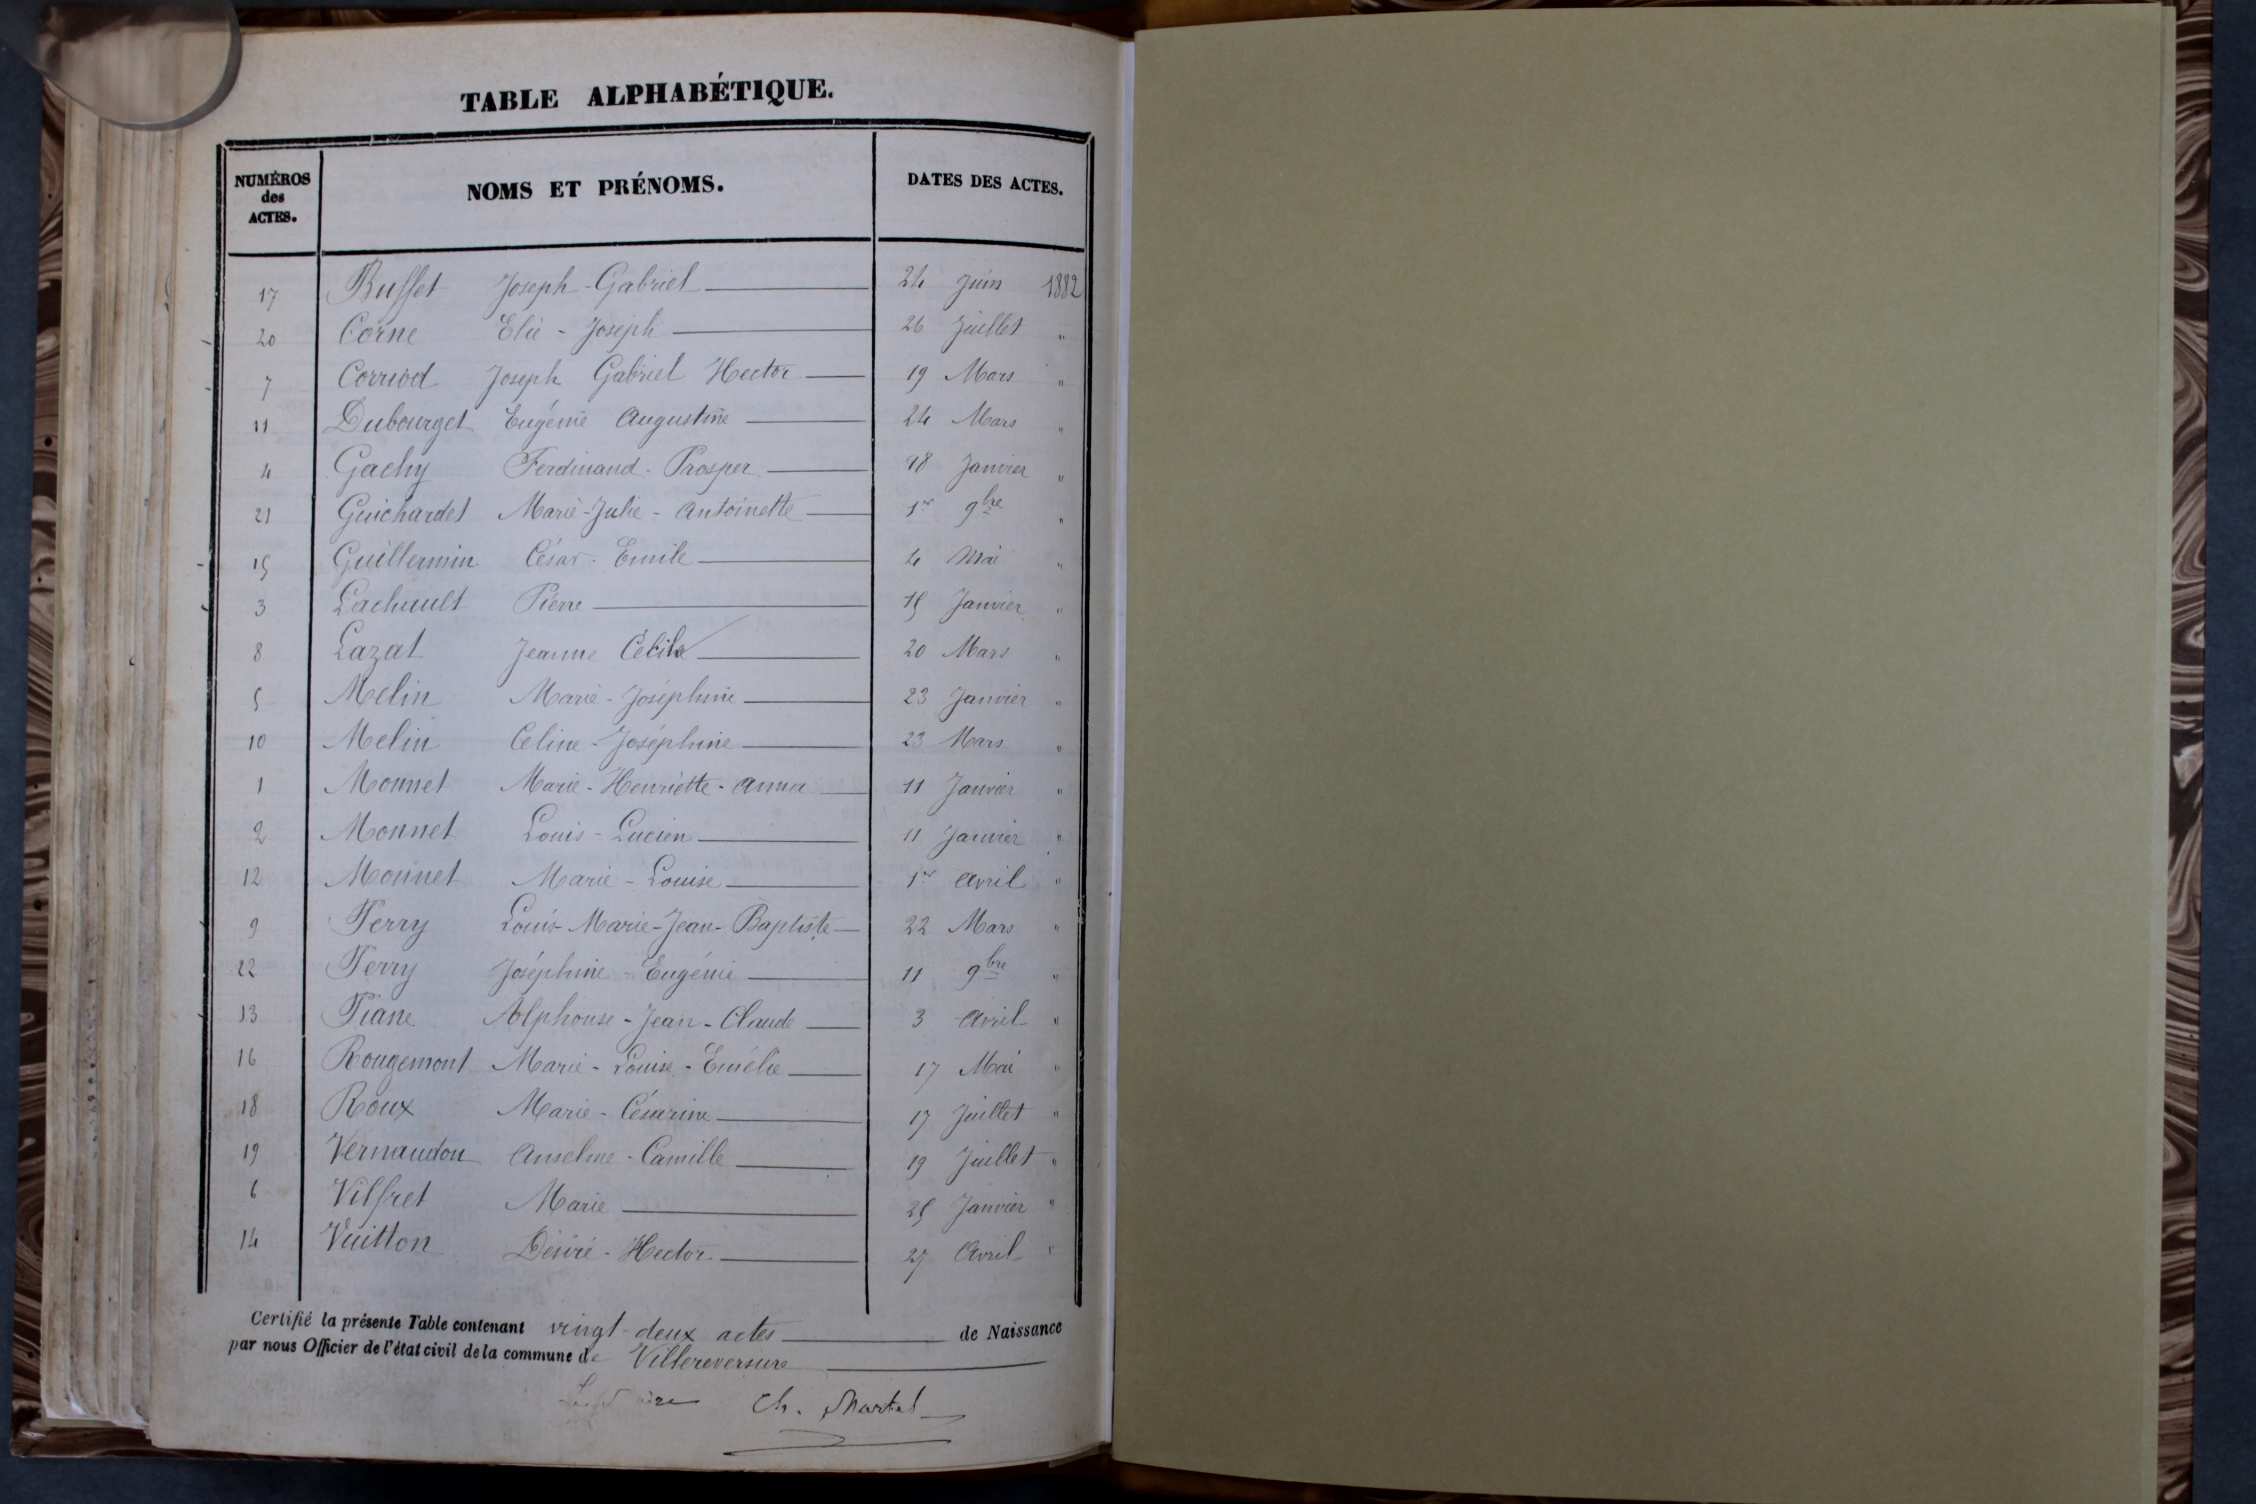 TABLE ALPHABÉTIQUE.
NUMÉROS des ACTES. NOMS ET PRÉNOMS. DATES DES ACTES.
17 Buffet Joseph-Gabriel 24 Juin 1882
20 Corne Elie-Joseph 26 Juillet "
7 Corriod Joseph Gabriel Hector 19 Mars "
11 Dubourget Eugénie Augustine 24 Mars "
4 Gachy Ferdinand-Prosper 18 Janvier "
21 Guichardet Marie-Julie-Antoinette 1er 9bre "
15 Guillermin César-Emile 4 Mai "
3 Lachault Pierre 15 Janvier "
8 Lazat Jeanne Cécile 20 Mars "
5 Melin Marie-Joséphine 23 Janvier "
10 Melin Celine-Joséphine 23 Mars "
1 Monnet Marie-Henriette-Anna 11 Janvier "
2 Monnet Louis-Lucien 11 Janvier "
12 Monnet Marie-Louise 1er Avril "
9 Perry Louis-Marie-Jean-Baptiste 22 Mars "
22 Perry Joséphine-Eugénie 11 9bre "
13 Piane Alphonse-Jean-Claude 3 Avril "
16 Rougemont Marie-Louise-Emélie 17 Mai "
18 Roux Marie-Césarine 17 Juillet "
19 Vernaudon Anselme-Camille 19 Juillet "
6 Vilfret Marie 25 Janvier "
14 Vuitton Désiré-Hector 27 Avril "
Certifié la présente Table contenant vingt-deux actes de Naissance
par nous Officier de l'état civil de la commune de Villereversure
Ch. Martel